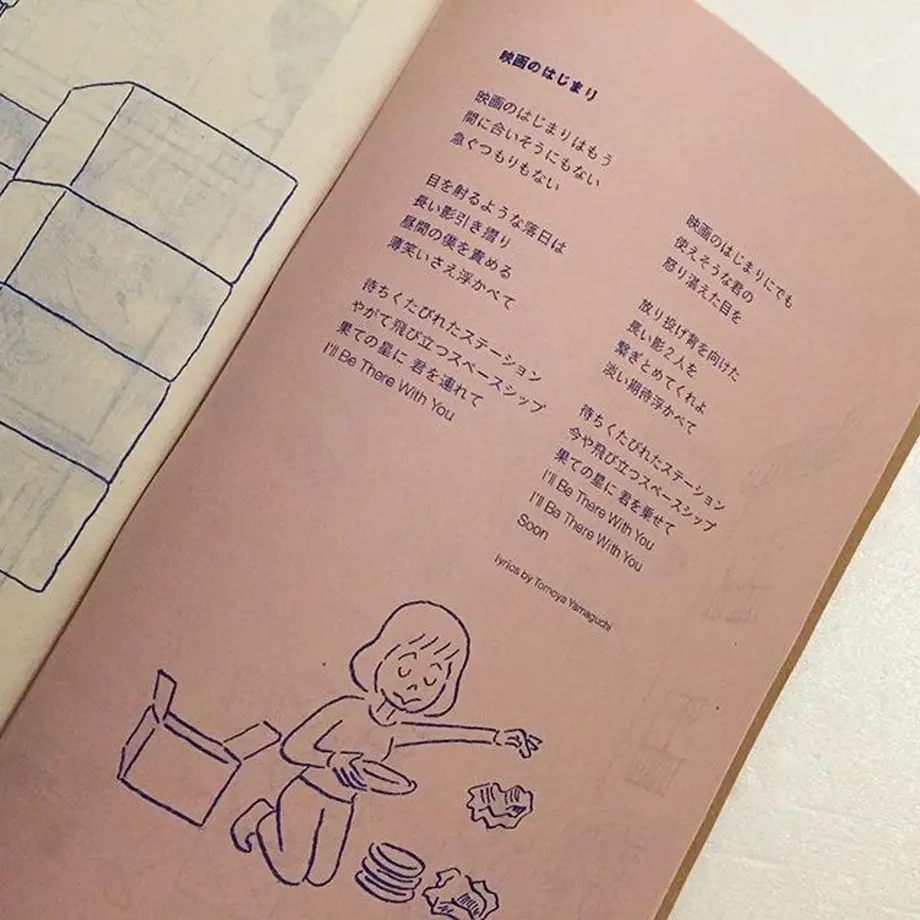 映画のはじまり
映画のはじまりはもう
間に合いそうにもない
急ぐつもりもない
目を射るような落日は
長い影引き摺り
昼間の僕を責める
薄笑いさえ浮かべて
待ちくたびれたステーション
やがて飛び立つスペースシップ
果ての星に 君を連れて
I'll Be There With You
映画のはじまりにでも
使えそうな君の
怒り湛えた目を
放り投げ背を向けた
長い影2人を
繋ぎとめてくれよ
淡い期待浮かべて
待ちくたびれたステーション
今や飛び立つスペースシップ
果ての星に 君を乗せて
I'll Be There With You
I'll Be There With You
Soon
lyrics by Tomoya Yamaguchi